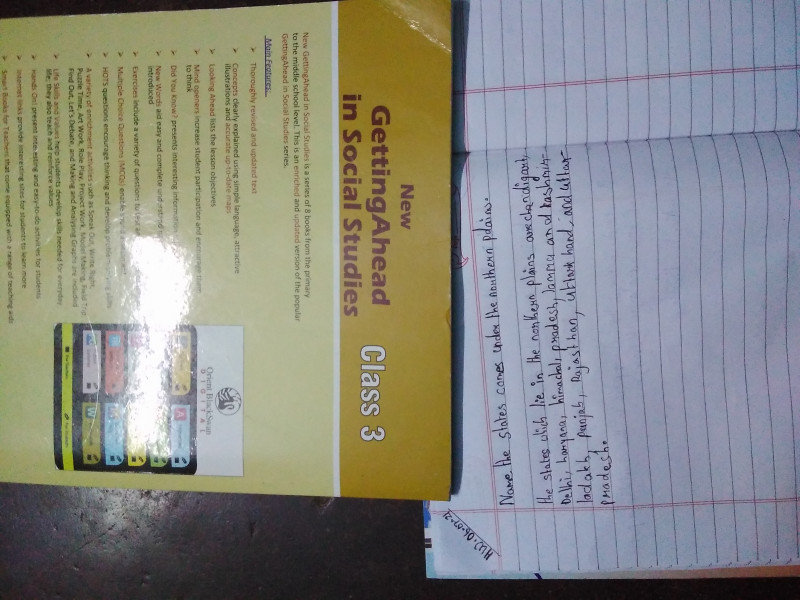 New
GettingAhead
in Social Studies
Class 3
New GettingAhead in Social Studies is a series of 8 books from the primary
to the middle school level. This is an enriched and updated version of the popular
GettingAhead in Social Studies series.
Main Features:
Thoroughly revised and updated text
Concepts clearly explained using simple language, attractive
illustrations and accurate up-to-date maps
Looking Ahead lists the lesson objectives
Mind openers increase student participation and encourage them
to think
Did You Know? presents interesting information
New Words aid easy and complete understanding
introduced
Exercises include a variety of questions to
Multiple Choice Questions (MCQs)
HOTS questions encourage thinking and develop skills
A variety of enrichment activities such as Speak Out, Write Right,
Puzzle Time, Art Work, Role Play, Project Work, Model Making,
Find Out, Let's Debate, and Making and Analysing Graphs are included
Life Skills and Values help students develop skills needed for everyday
life; they also teach and reinforce values
Hands On! present interesting and easy-to-do activities for students
Internet links provide interesting sites for students to learn more
Smart Books for Teachers that come equipped with a range of teaching aids
Orient BlackSwan
DIGITAL
H.W.
Name the states comes under the northern plains.
the states which lie in the northern plains are chandigarh,
Delhi, haryana, himachal pradesh, Jammu and kashmir
ladakh, punjab, Rajasthan, uttarkhand and uttar
pradesh.